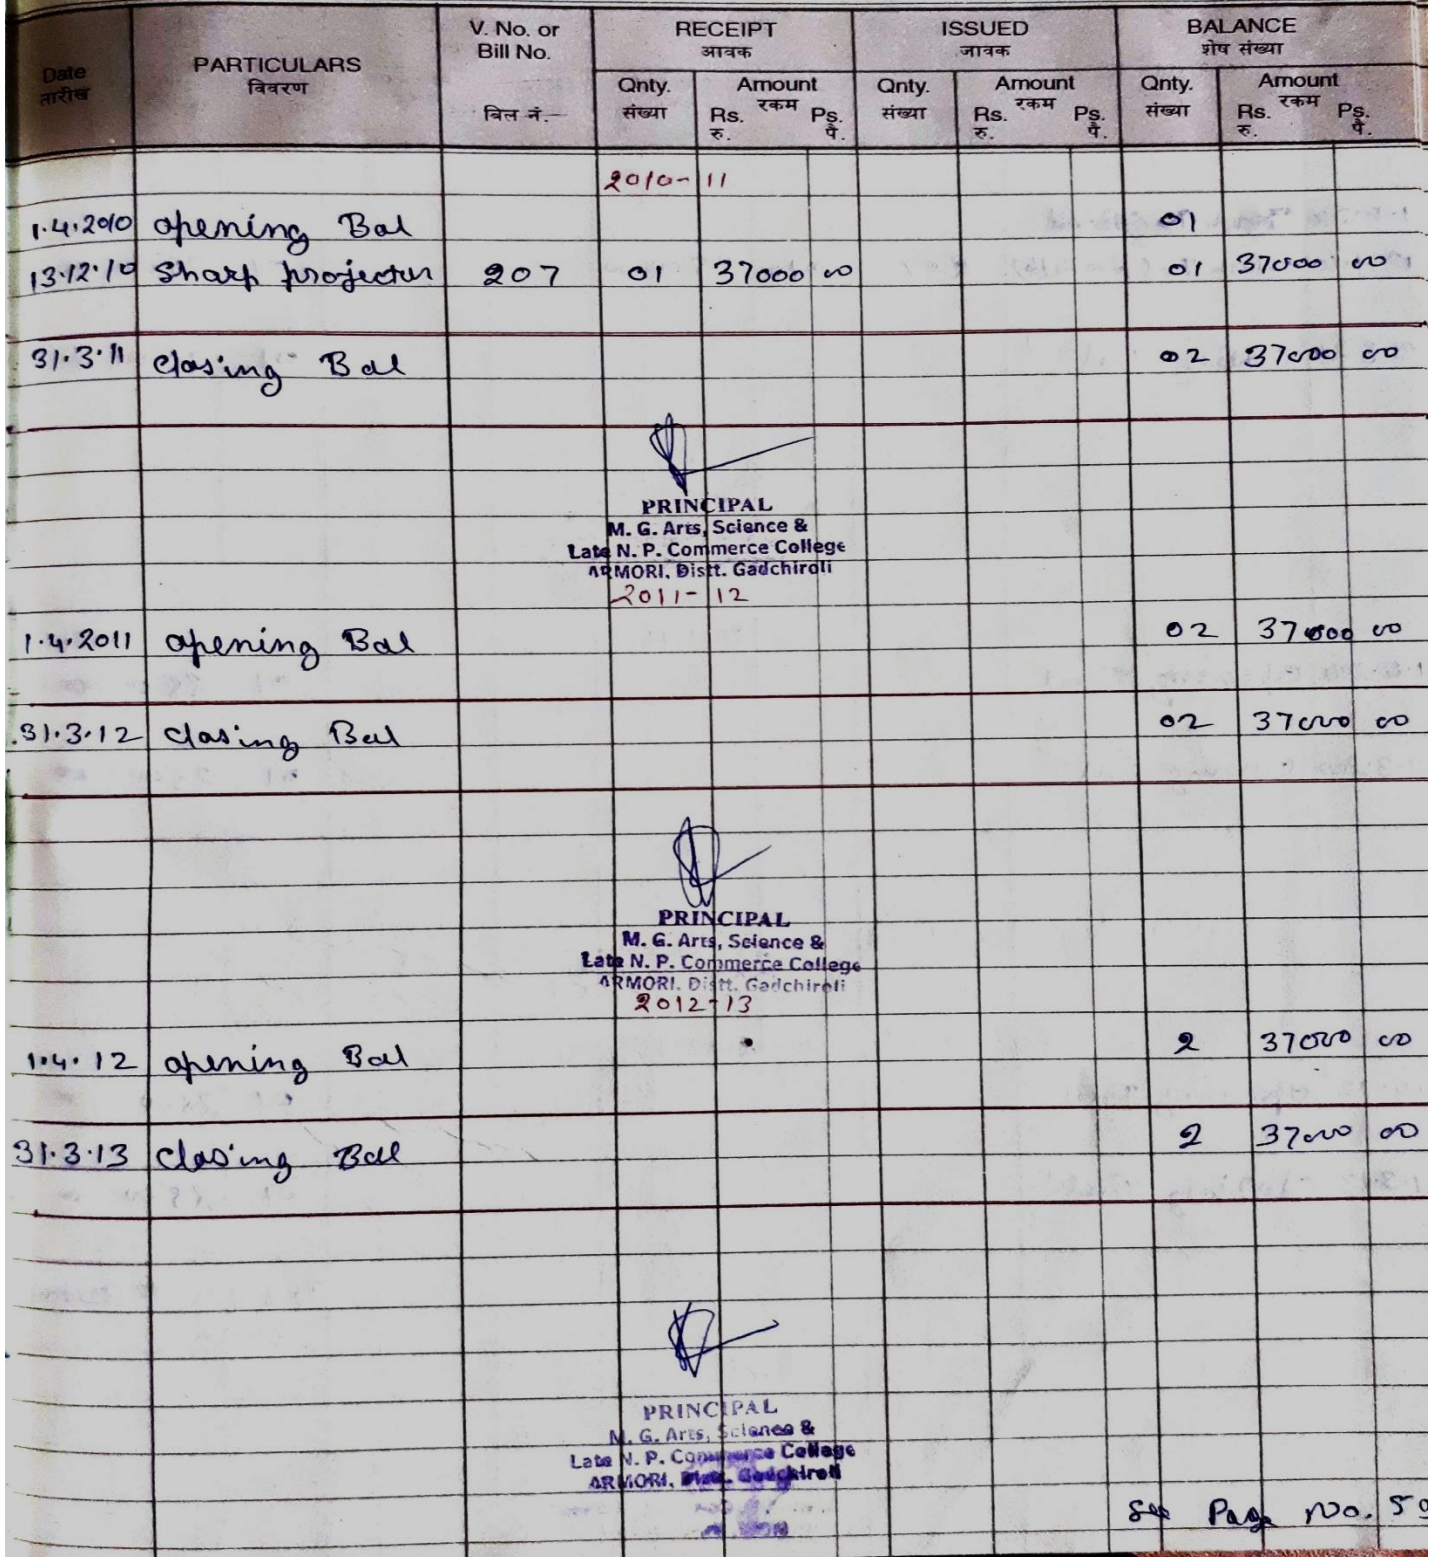 Date PARTICULARS V. No. or Bill No. RECEIPT ISSUED BALANCE
तारीख विवरण बिल नं. आवक जावक शेष संख्या
Qnty. Amount Qnty. Amount Qnty. Amount
संख्या Rs. रकम Ps. संख्या Rs. रकम Ps. संख्या Rs. रकम Ps.
रु. पै. रु. पै. रु. पै.
2010-11
1.4.2010 opening Bal 01
13.12.10 Sharp projector 207 01 37000 00 01 37000 00
31.3.11 closing Bal 02 37000 00
PRINCIPAL
M. G. Arts, Science &
Late N. P. Commerce College
ARMORI, Distt. Gadchiroli
2011-12
1.4.2011 opening Bal 02 37000 00
31.3.12 closing Bal 02 37000 00
PRINCIPAL
M. G. Arts, Science &
Late N. P. Commerce College
ARMORI, Distt. Gadchiroli
2012-13
1.4.12 opening Bal 2 37000 00
31.3.13 closing Bal 2 37000 00
PRINCIPAL
M. G. Arts, Science &
Late N. P. Commerce College
ARMORI, Distt. Gadchiroli
See Page No.